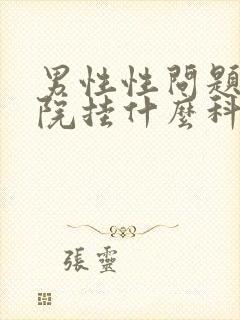 男性性問題
院挂什麼科
張靈